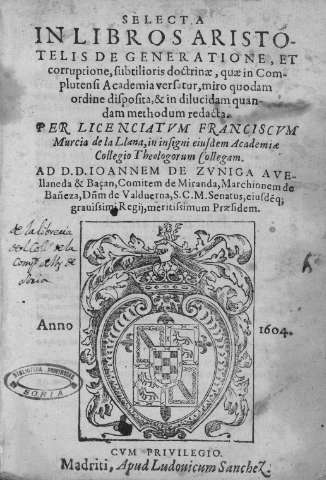 SELECTA
IN LIBROS ARISTO-
TELIS DE GENERATIONE, ET
corruptione, subtilioris doctrinæ, quæ in Com-
plutensi Academia versatur, miro quodam
ordine disposita, & in dilucidam quan-
dam methodum redacta.
PER LICENCIATVM FRANCISCVM
Murcia de la Llana, in insigni eiusdem Academiæ
Collegio Theologorum Collegam.
AD D.D. IOANNEM DE ZVNIGA AVE-
llaneda & Baçan, Comitem de Miranda, Marchionem de
Bañeza, Dñm de Valduerna, S.C.M. Senatus, eiusdéq;
grauissimi Regij, meritissimum Præsidem.
de la libreria
del Colº de la
Comp. de Jhs de
Soria
Anno 1604.
BIBLIOTECA PROVINCIAL
SORIA
CVM PRIVILEGIO.
Madriti, Apud Ludouicum Sanchez.